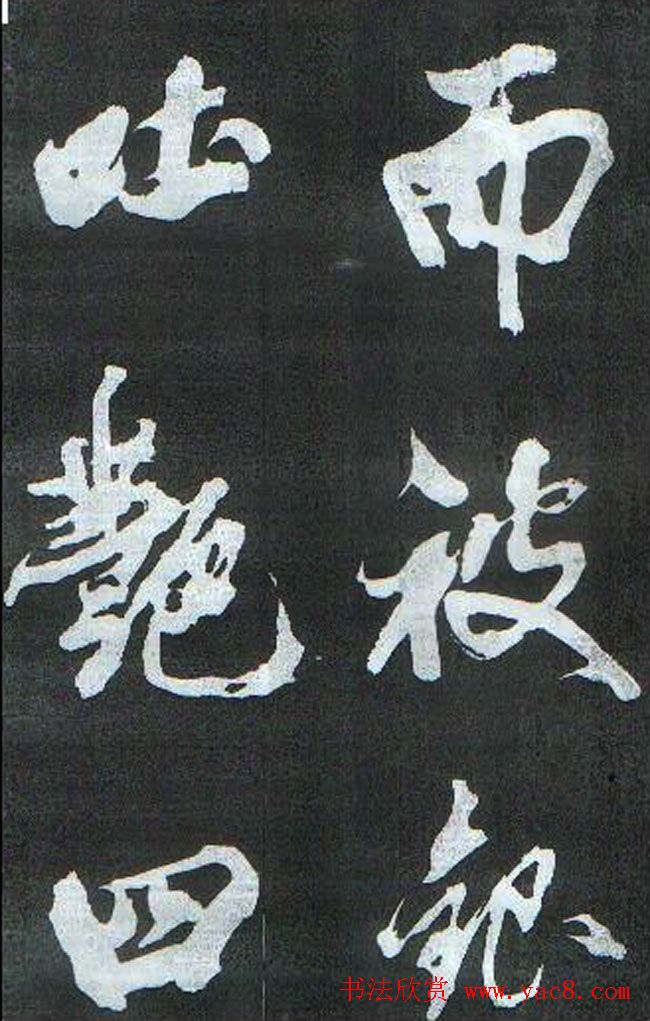 而被
吐艷四
书法欣赏 www.yac8.com